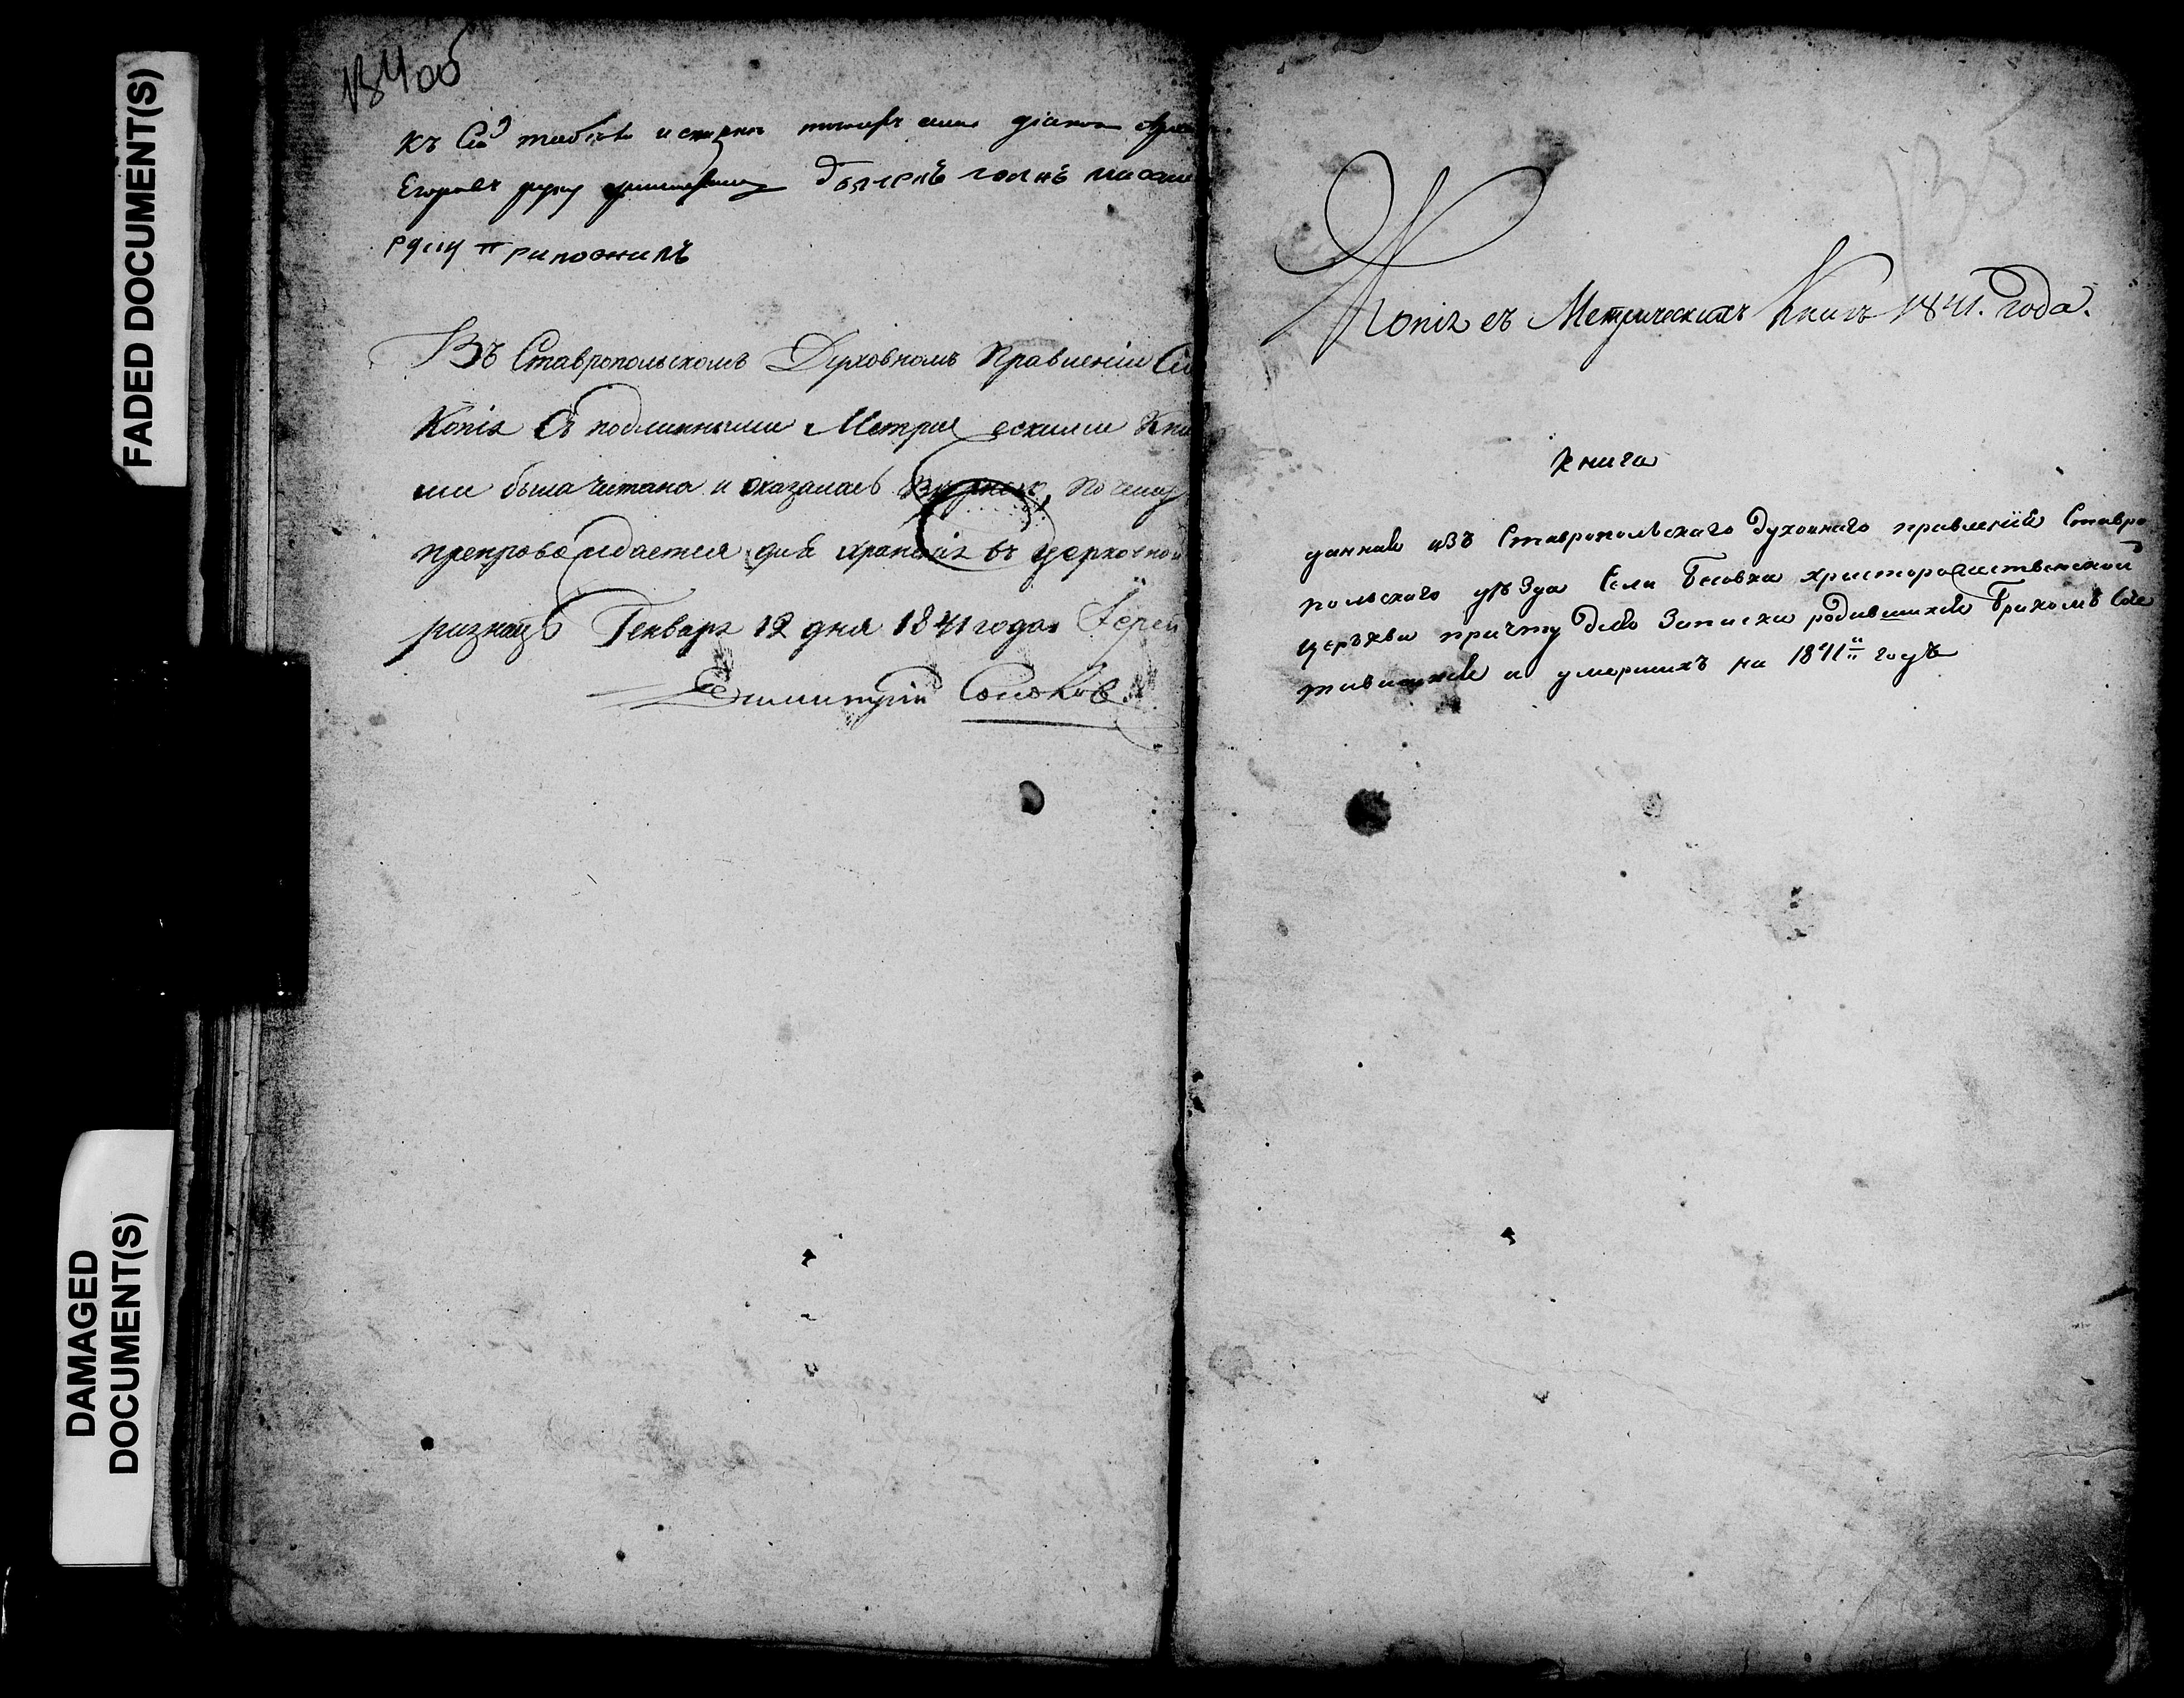 FADED DOCUMENT(S)
DAMAGED
DOCUMENT(S)
134об
къ сей діакон
Егоровъ руку
руку приложилъ
Въ Ставропольскомъ Духовномъ Правленіи Сія
Копія Съ подлинными Метрическими Кни
ми была читана и оказалась Вѣрною, почему
препровождается для храненія въ церковной
ризницѣ Генваря 12 дня 1841 года Іерей
Димитрій Соколов
135
Копія съ Метрическихъ Книгъ 1841. года.
Книга
данная изъ Ставропольскаго Духовнаго правленія Ставро
польскаго уѣзда Села Христорождественской
церькви причту для Записки родившихся Бракомъ Соче
тавшихся и умершихъ на 1841й годъ